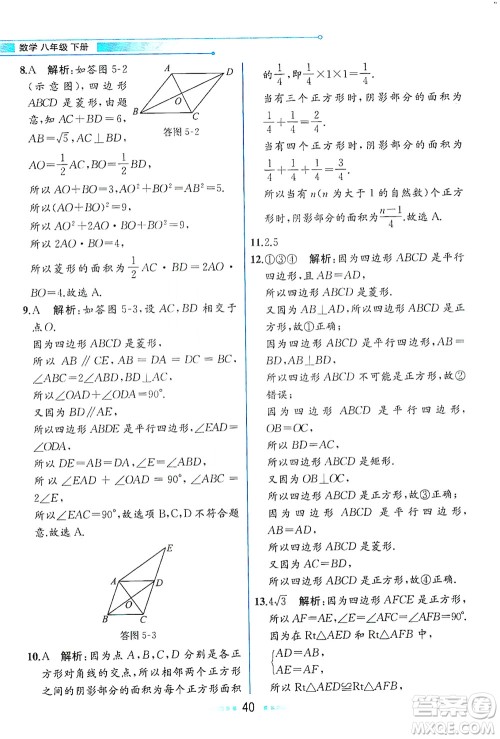 数学 八年级 下册
8.A 解析:如答图 5-2
(示意图),四边形
ABCD 是菱形,由题
意,知 AC+BD=6,
AB=√5,AC⊥BD,
AO=1/2AC,BO=
1/2BD,
所以 AO+BO=3,
所以(AO+BO)²=9,
所以 AO²+BO²+2AO·BO=9,
所以 2AO·BO=4,
所以菱形的面积为1/2AC·BD=2AO·BO=
4.故选 A.
答图 5-2
9.A 解析:如答图 5-3,设 AC,BD 相交于
点O.
因为四边形 ABCD 是菱形,
所以 AB∥CD,AC⊥BD,∠CDA=
2∠ADO,
所以∠OAD+∠ODA=90°.
又因为 BD∥AE,
所以四边形 ABDE 是平行四边形,∠EAD
=∠ODA,
所以 ED=AB,
所以∠OAD+∠EAD=90°,
所以∠EAC=90°,故选项 B,C,D 不符合题
意.故选 A.
答图 5-3
10.A 解析:因为点 A,B,C,D 分别是各正方
形对角线的交点,所以相邻两个正方形
之间的阴影部分的面积为每个正方形面积
的1/4,即1/4×1×1=1/4.
当有三个正方形时,阴影部分的面积为
1/4+1/4=2/4.
当有四个正方形时,阴影部分的面积为
1/4+1/4+1/4=3/4.
所以当有 n(n 为大于 1 的自然数)个正方
形时,阴影部分的面积为(n-1)/4.故选 A.
11.2.5
12.①③④ 解析:因为四边形 ABCD 是平行
四边形,且 AB=AD,
所以四边形 ABCD 是菱形.
又因为 AB⊥AD,
所以四边形 ABCD 是正方形,故①正确;
因为四边形 ABCD 是平行四边形,AB=
BD,AB⊥BD,
所以四边形 ABCD 不可能是正方形,故②
错误;
因为四边形 ABCD 是平行四边形,
OB=OC,
所以四边形 ABCD 是矩形.
又因为 OB⊥OC,
所以四边形 ABCD 是正方形,故③正确;
因为四边形 ABCD 是平行四边形,
AB=AD,
所以四边形 ABCD 是菱形.
又因为 AC=BD,
所以四边形 ABCD 是正方形,故④正确.
故选①③④.
13.4√3 解析:因为四边形 AFCE 是正方形,
所以 AF=AE,∠E=∠AFC=∠AFB=
90°.因为在 Rt△AED 和 Rt△AFB 中,
{AD=AB,
AE=AF,
所以 Rt△AED≌Rt△AFB(HL),
40